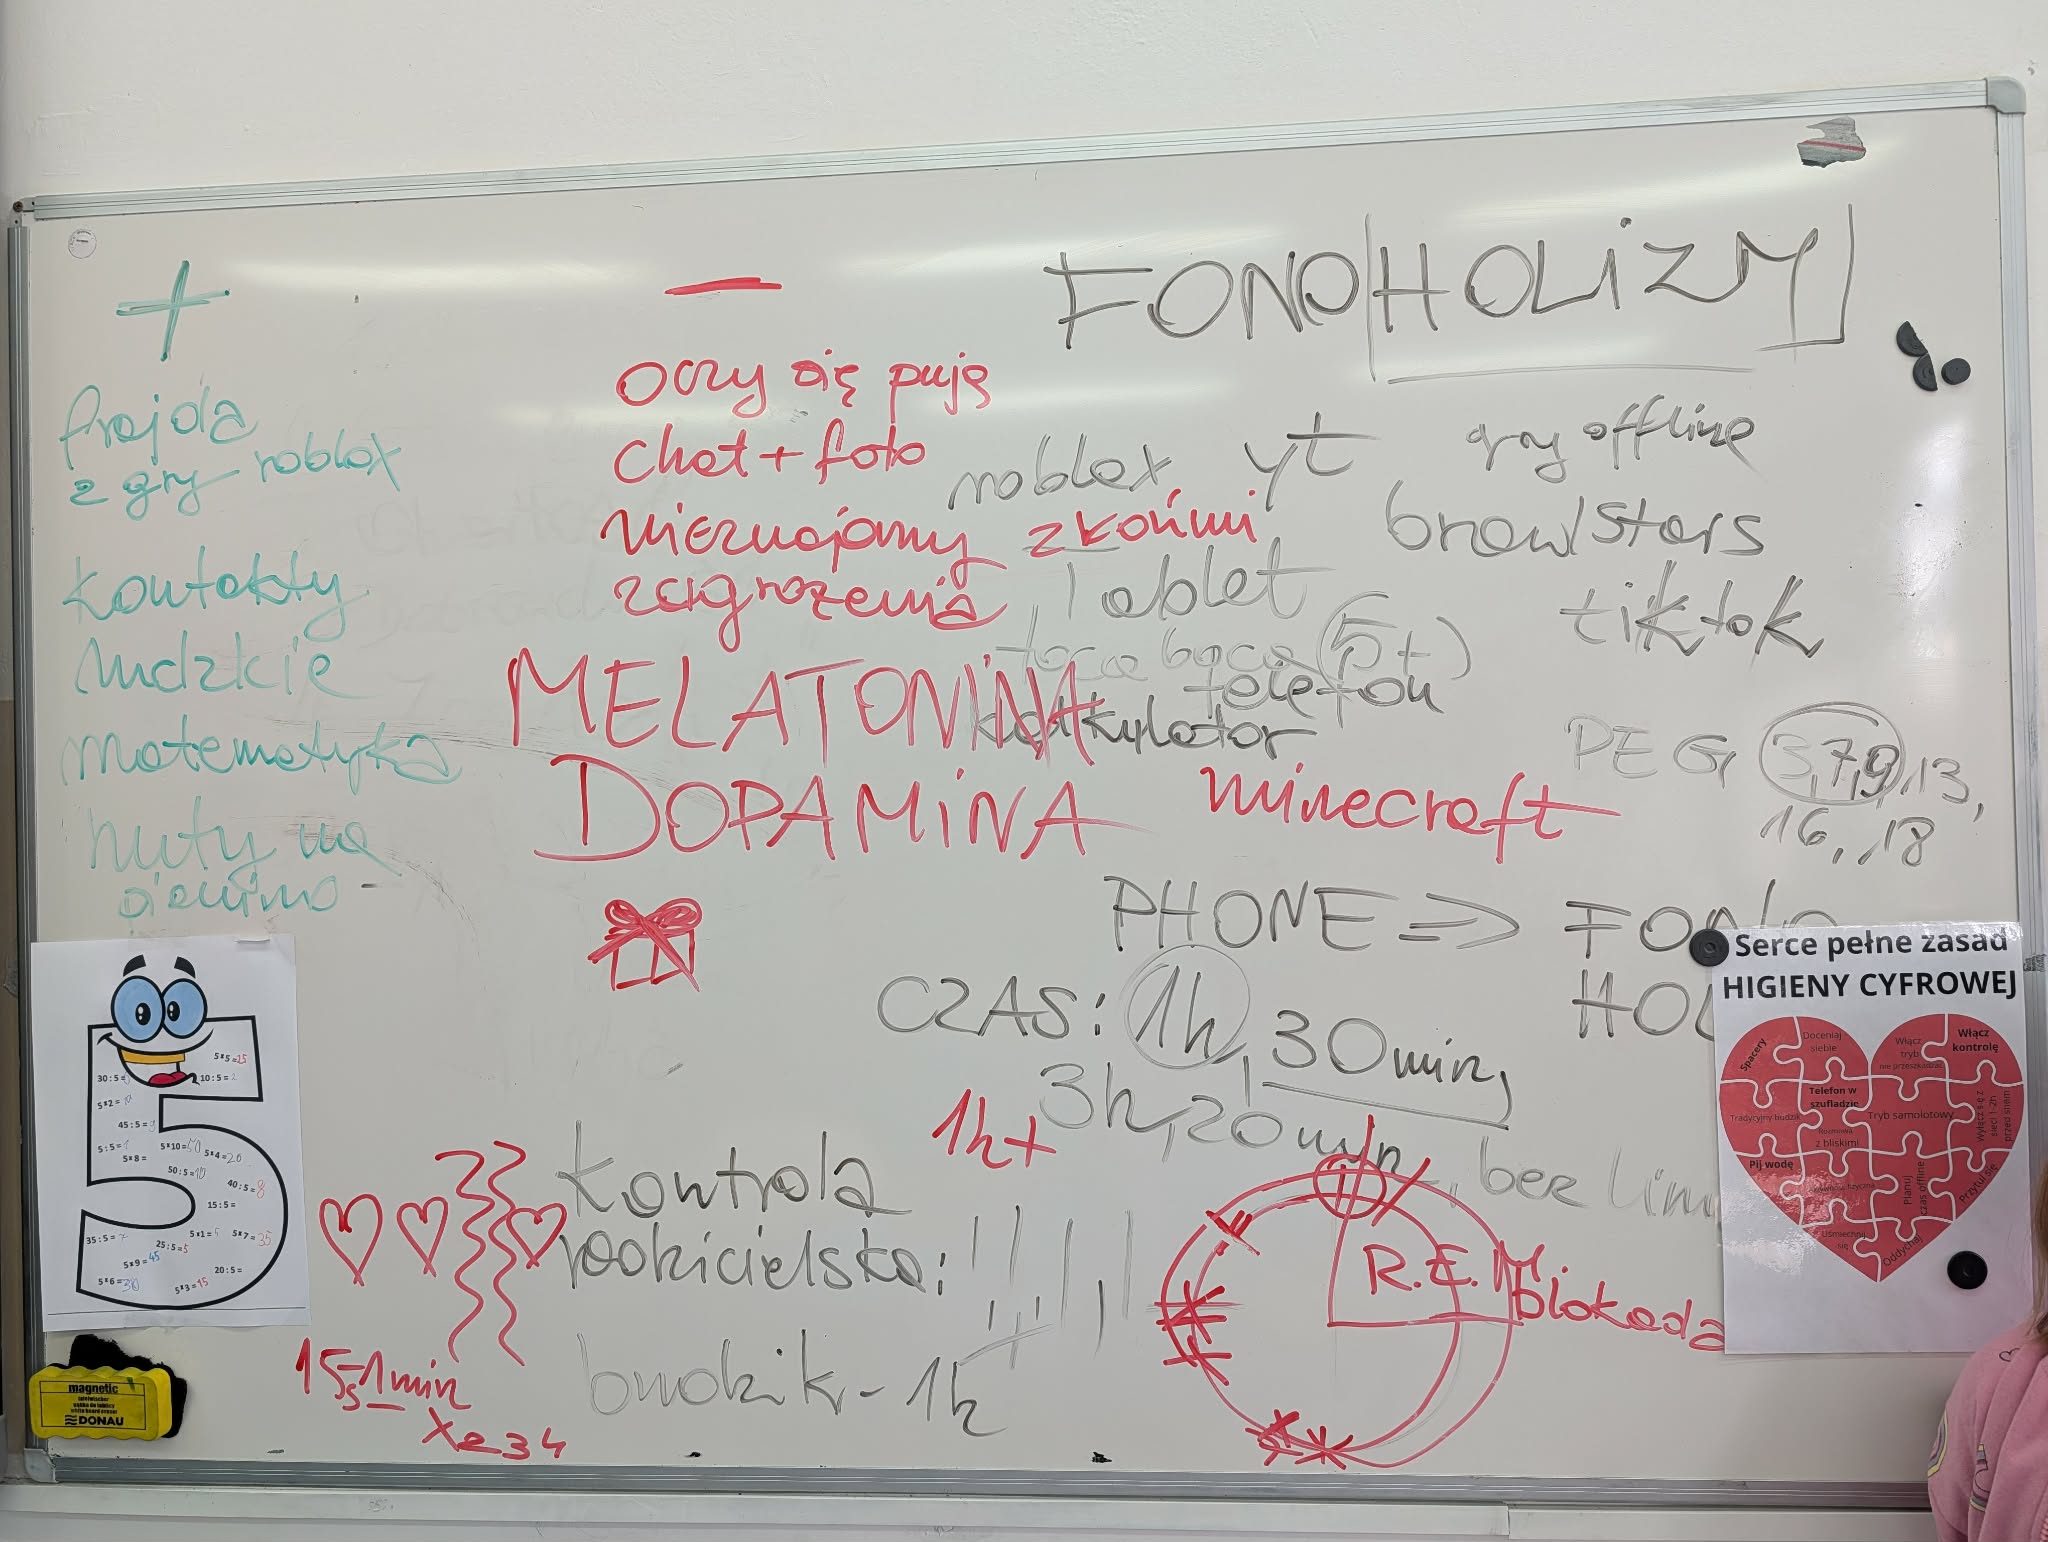 +
frajda
z gry roblox
kontakty
ludzkie
matematyka
nuty na
pianino
—
oczy się pują
chat + foto
nieznajomy z końmi
zagrożenia
MELATONINA
DOPAMINA
minecraft
FONO|HOLiZM
roblox yt gry offline
brawlstars
Tablet
tiktok
toca boca (5+)
telefon
kalkulator
PEGI 3,7,9,13,
16, 18
PHONE => FONO
HOL
CZAS: 1h, 30min,
3h, 20min, bez lim
1h+
Kontrola
rodzicielska:
budzik - 1h
15s-1min
R.E.M.
blokada
5*5=25
30:5=
10:5=2
5*2=10
45:5=9
5:5=1
5*10=50
5*4=20
5*8=
50:5=10
40:5=8
15:5=
35:5=7
5*1=5
5*7=35
25:5=5
5*9=45
20:5=
5*6=30
5*3=15
magnetic
DONAU
Serce pełne zasad
HIGIENY CYFROWEJ
Spacery
Doceniaj
siebie
Włącz
tryb
nie przeszkadzać
Włącz
kontrolę
Tradycyjny budzik
Telefon w
szufladzie
Tryb samolotowy
Wyłącz się z
sieci 1-2h
przed snem
Rozmowa
z bliskimi
Pij wodę
Aktywność fizyczna
Planuj
czas offline
Przytul się
Uśmiechnij
się
Oddychaj